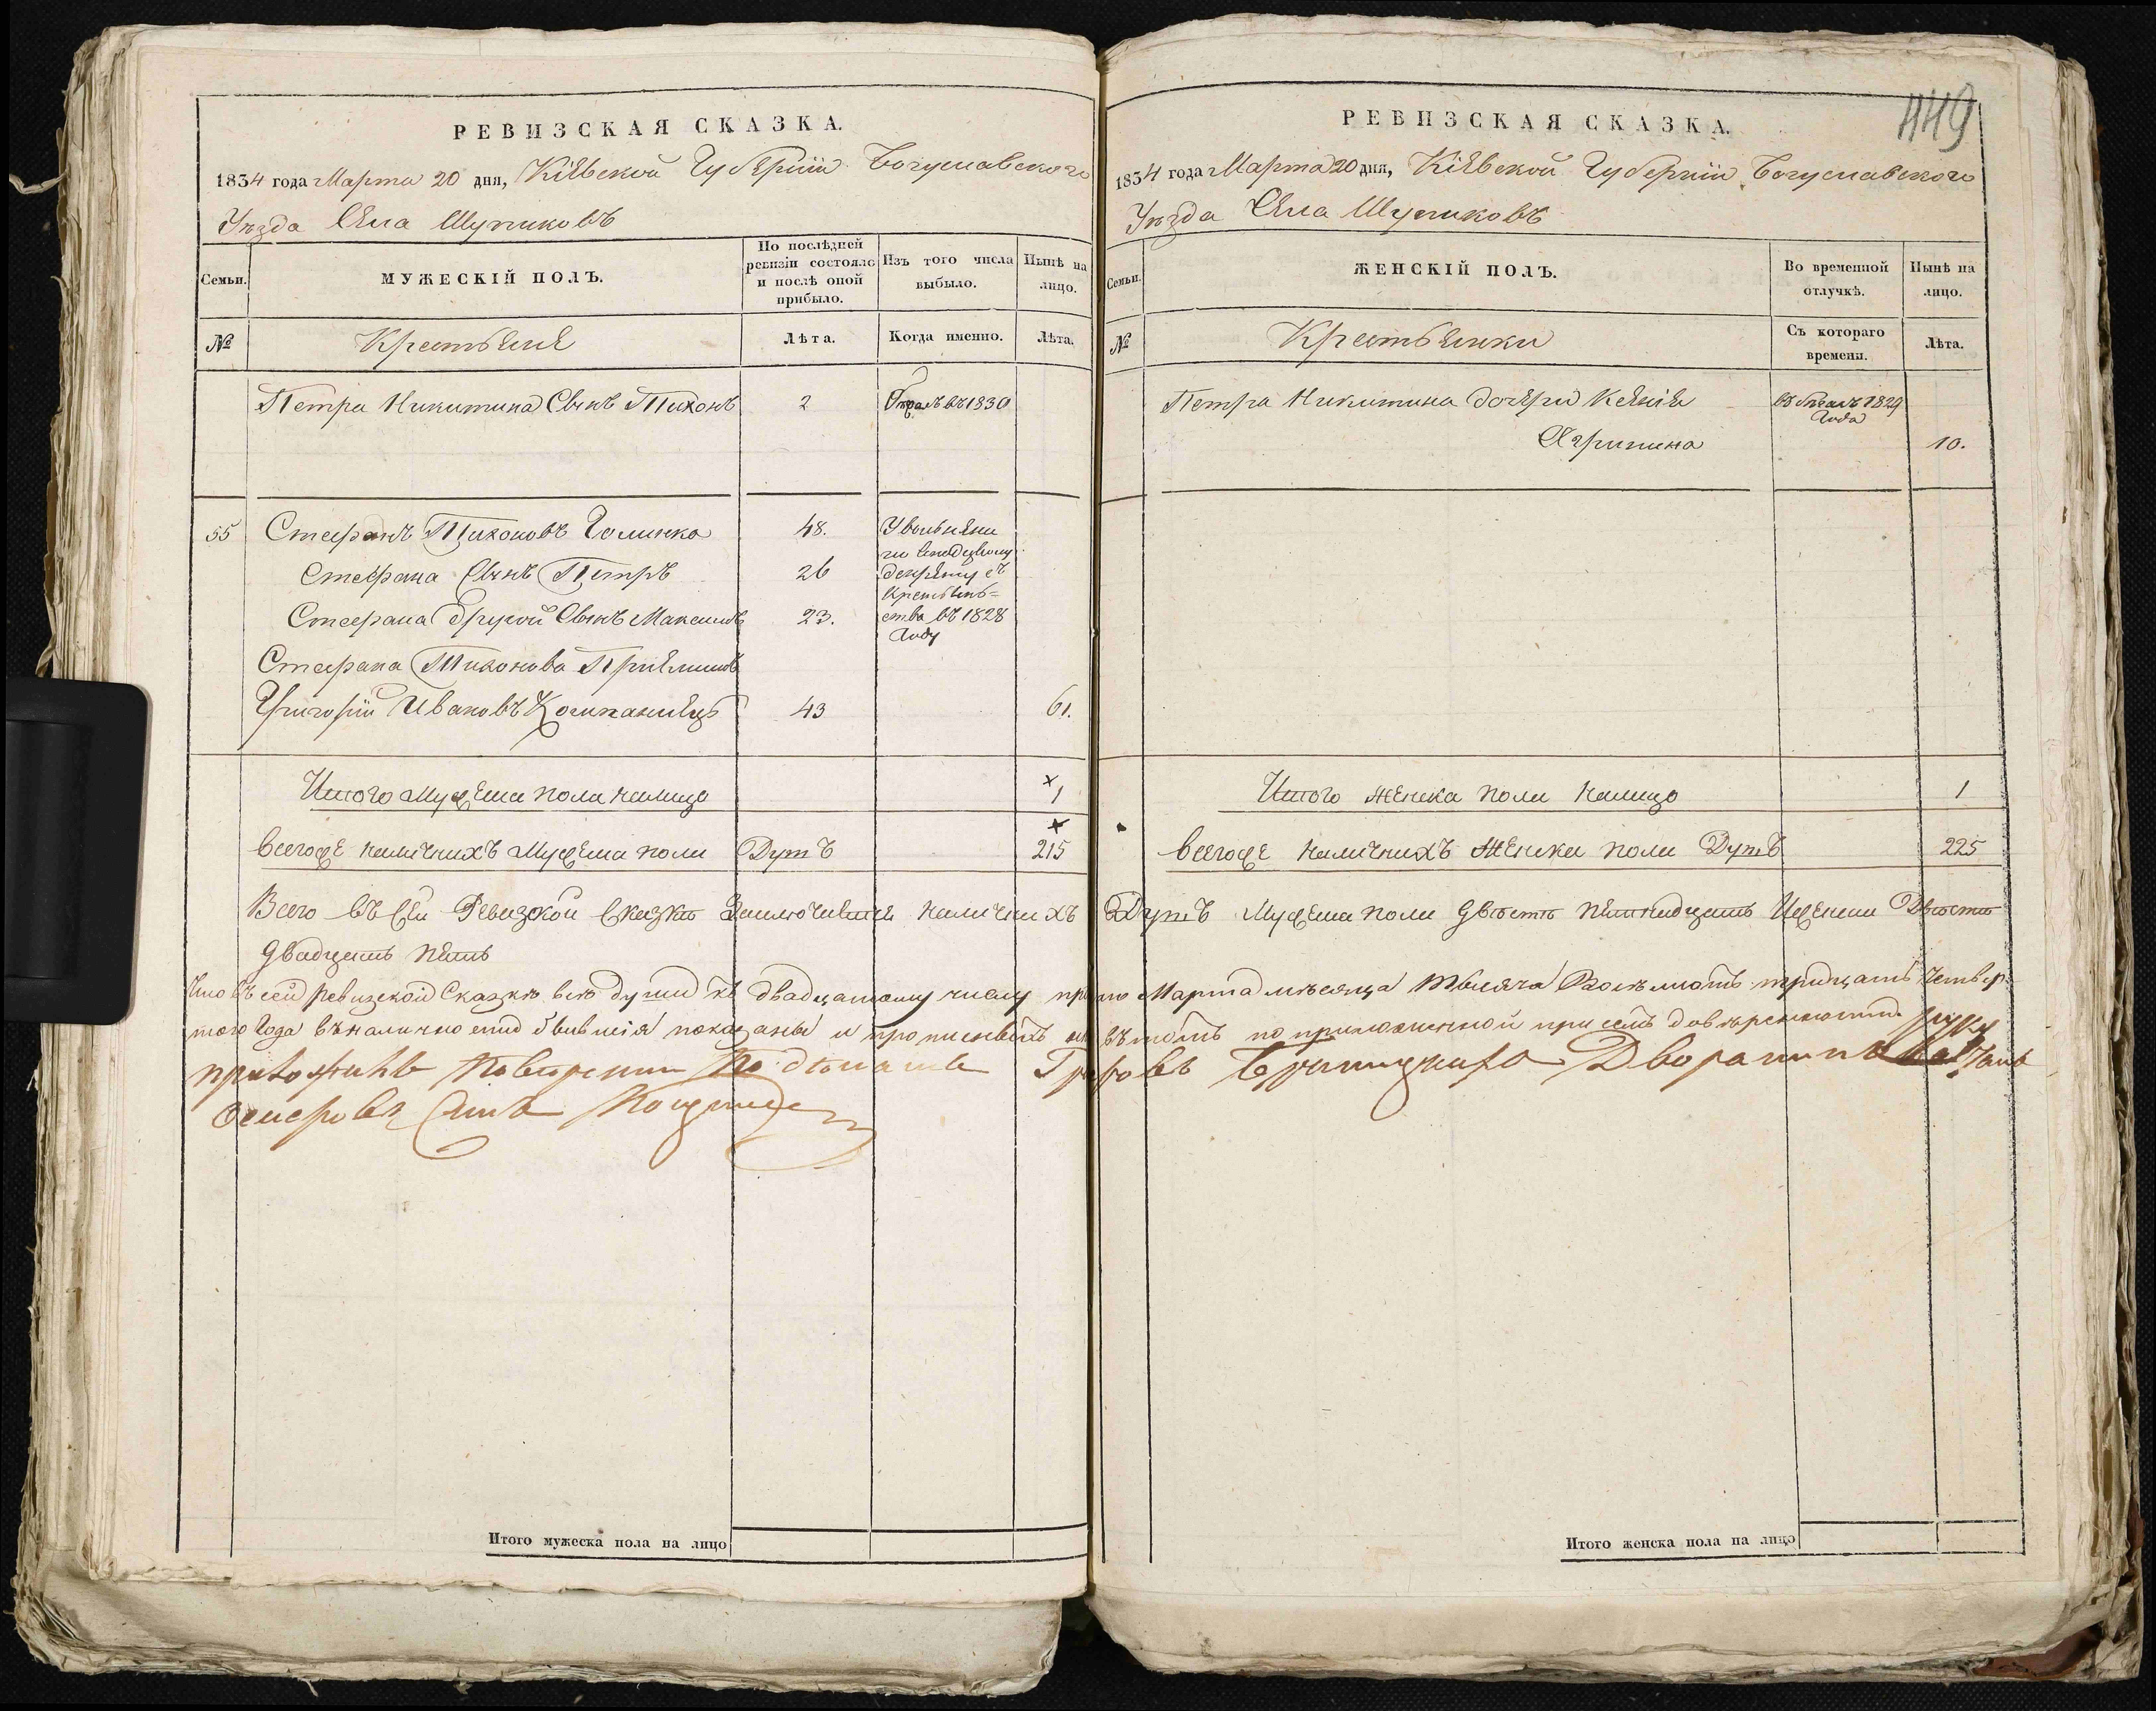 РЕВИЗСКАЯ СКАЗКА.
1834 года Марта 20 дня, Кіевской Губерніи Богуславского
Уѣзда Села Шупиковъ
Семьи.
МУЖЕСКІЙ ПОЛЪ.
По послѣдней ревизіи состояло и послѣ оной прибыло.
Изъ того числа выбыло.
Нынѣ на лицо.
№
Крестьяне
Лѣта.
Когда именно.
Лѣта.
Петра Никитина Сынъ Тихонъ 2 въ 1830
55 Стефанъ Тихоновъ Голинка 48. Уволнени
Стефана Сынъ Петръ 26 по декрету съ
Крестьян=
Стефана другой Сынъ Максимъ 23. ства въ 1828
Году
Стефана Тихонова Пріемишъ
Григорій Ивановъ Компаніецъ 43 61.
Итого Мужеска пола налицо 1
Всегоже наличнихъ Мужеска пола Душъ 215
РЕВИЗСКАЯ СКАЗКА.
449
1834 года Марта 20 дня, Кіевской Губерніи Богуславского
Уѣзда Села Шупиковъ
Семьи.
ЖЕНСКІЙ ПОЛЪ.
Во временной отлучкѣ.
Нынѣ на лицо.
№
Крестьянки
Съ котораго времени.
Лѣта.
Петра Никитина дочери Ксенія 1829
Года
Агрипина 10.
Итого Женска пола налицо 1
Всегоже наличнихъ Женска пола Душъ 225
Всего въ сей Ревизской Сказке Заключившіеся наличнихъ Душъ Мужеска пола двѣсте пятнадцать Иженска Двѣсте
двадцать пять
Что въ сей ревизской Сказкѣ всѣ души къ двадцатому числу Марта мѣсяца Тысяча Восемьсотъ тридцать Четвер-
того Года въ наличности бывшія показаны и въ томъ по приложенной при семъ довѣренности руку
приложилъ Повѣренни Графовъ Браницкихъ Дворанинъ

Итого мужеска пола на лицо
Итого женска пола на лицо